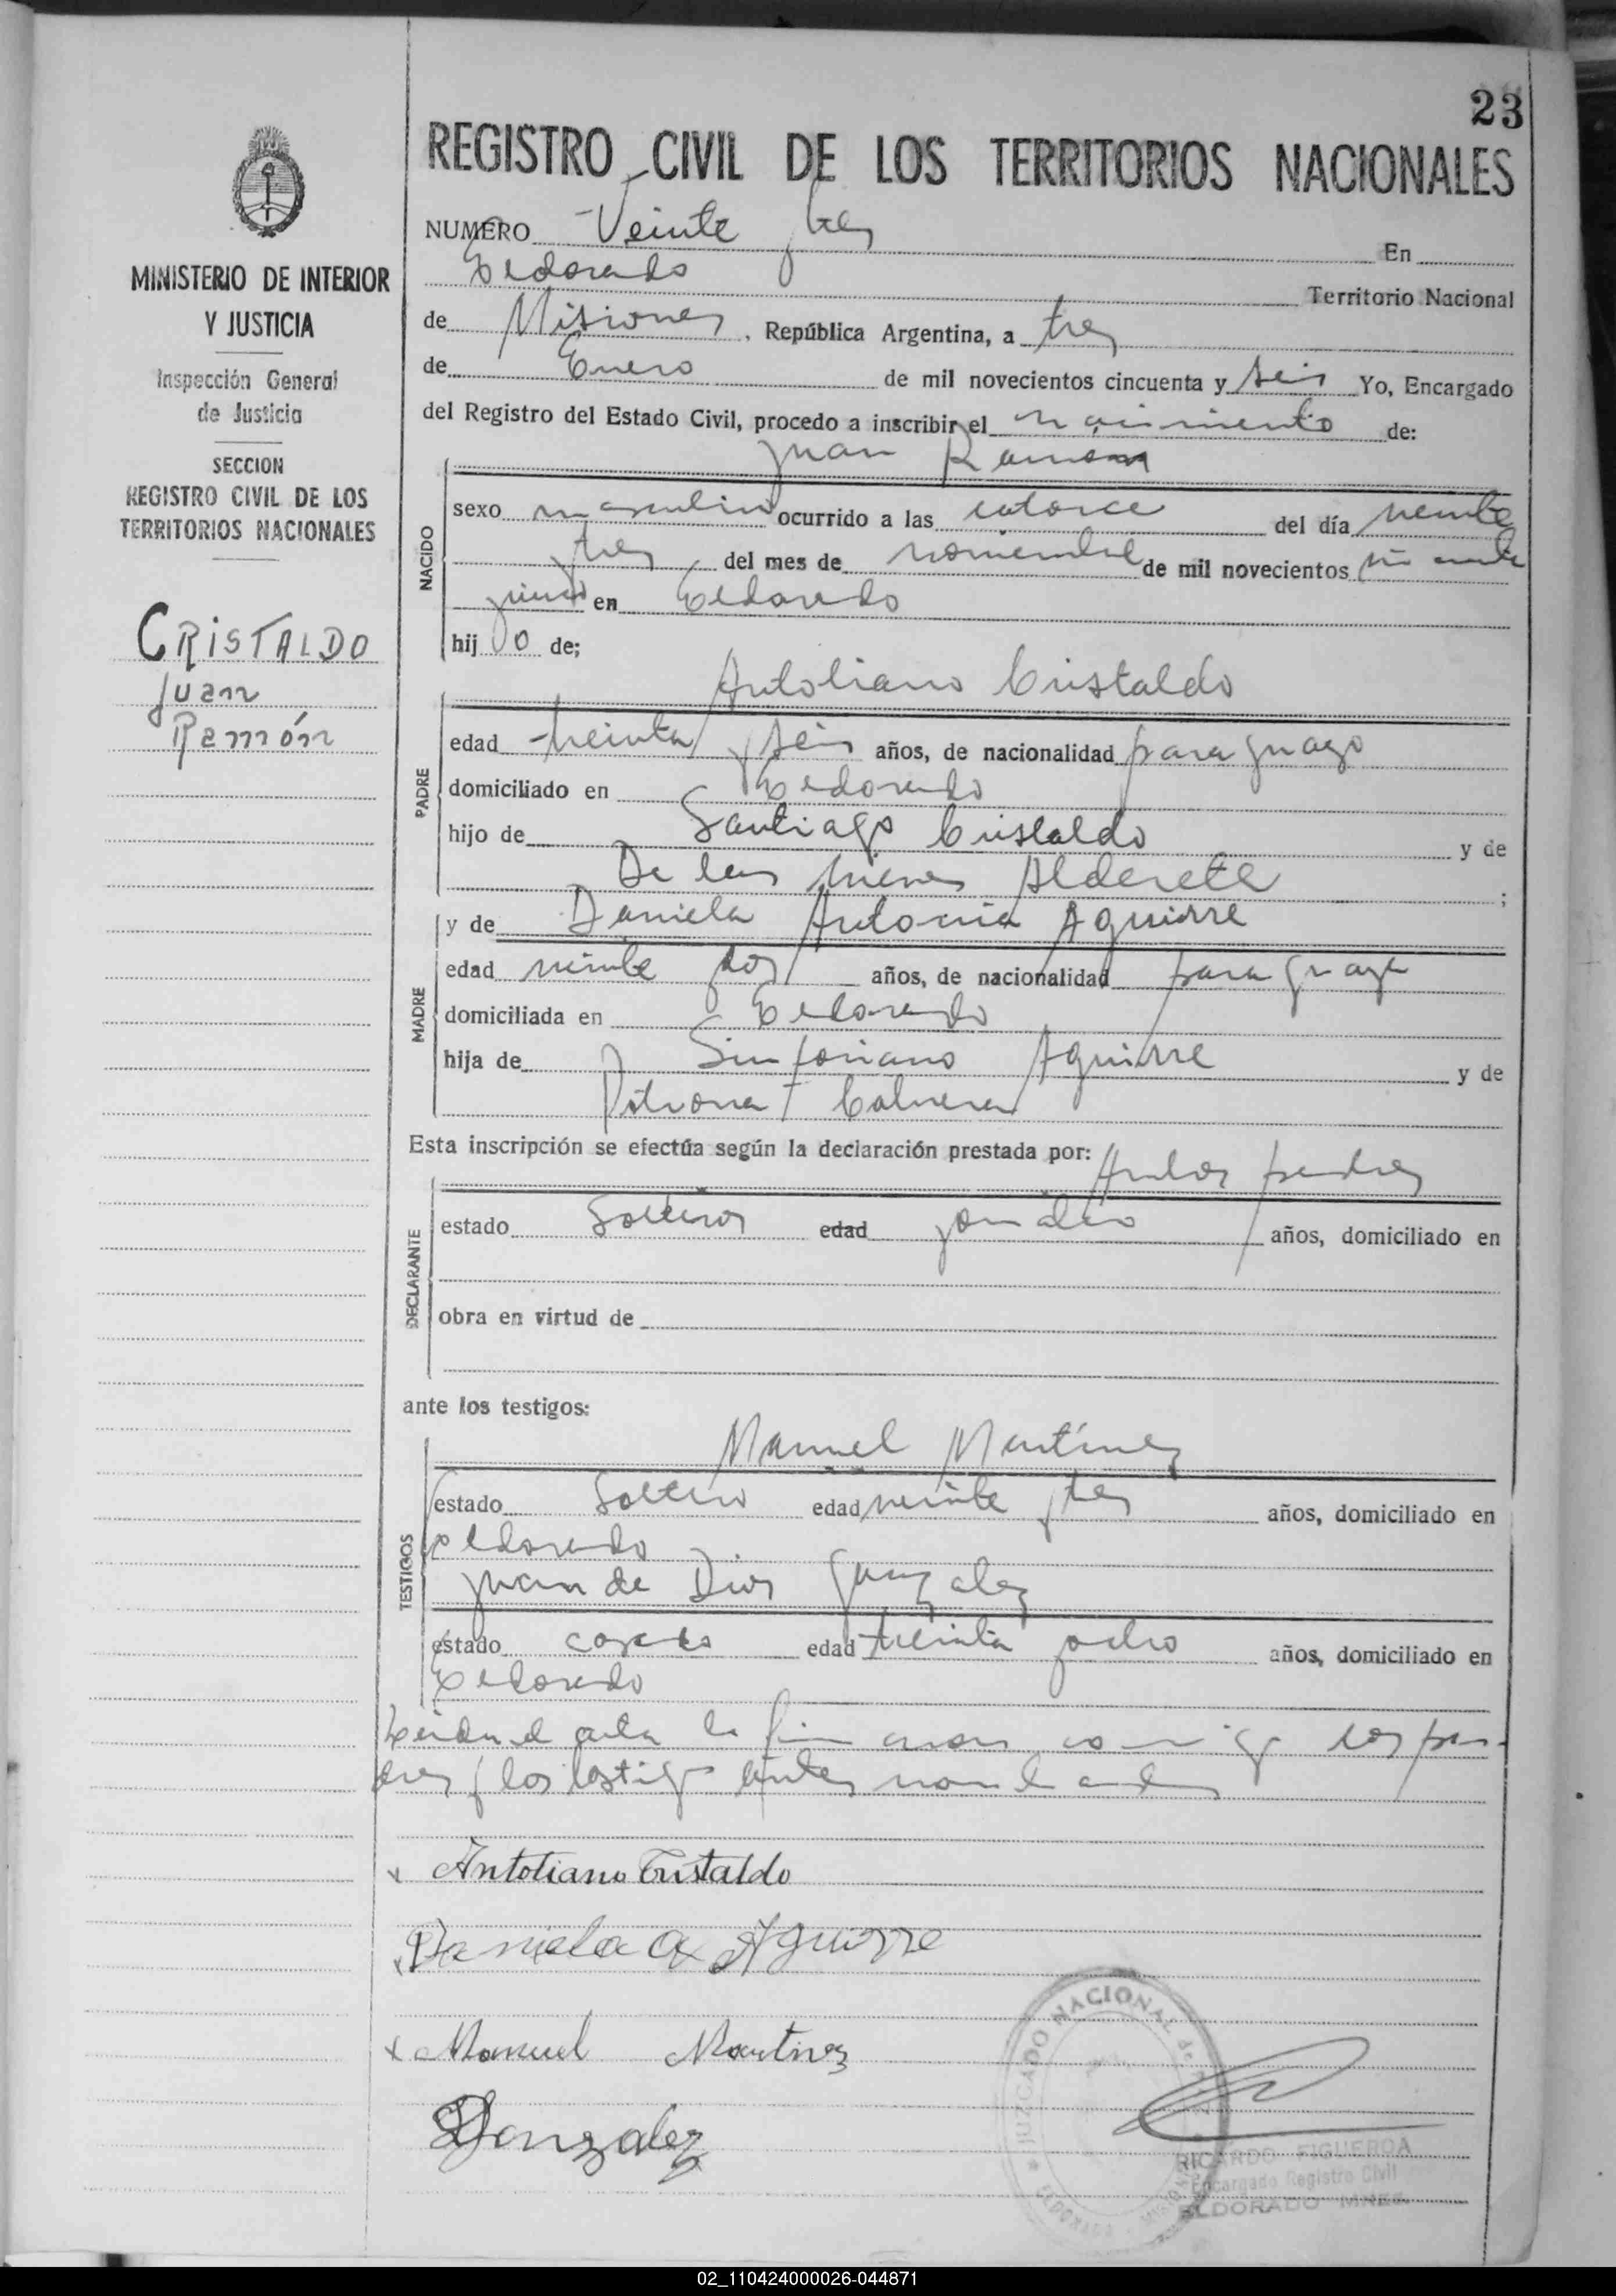 23
REGISTRO CIVIL DE LOS TERRITORIOS NACIONALES
MINISTERIO DE INTERIOR
Y JUSTICIA
Inspección General
de Justicia
SECCION
REGISTRO CIVIL DE LOS
TERRITORIOS NACIONALES
CRISTALDO
Juan
Ramón
NUMERO Veinte y tres En
Eldorado Territorio Nacional
de Misiones, República Argentina, a tres
de Enero de mil novecientos cincuenta y seis Yo, Encargado
del Registro del Estado Civil, procedo a inscribir el nacimiento de:
Juan Ramon
NACIDO
sexo masculino ocurrido a las catorce del día veinte
y tres del mes de noviembre de mil novecientos
en Eldorado
hij o de;
Antoliano Cristaldo
PADRE
edad treinta y seis años, de nacionalidad paraguayo
domiciliado en Eldorado
hijo de Santiago Cristaldo y de
De las Nieves Alderete ;
y de Daniela Antonia Aguirre
MADRE
edad veinte y dos años, de nacionalidad paraguaya
domiciliada en Eldorado
hija de Sinforiano Aguirre y de
Petrona Cabrera
Esta inscripción se efectúa según la declaración prestada por: Ambos padres
DECLARANTE
estado Solteros edad años, domiciliado en
obra en virtud de
ante los testigos:
Manuel Martínez
TESTIGOS
estado Soltero edad veinte y tres años, domiciliado en
Eldorado
Juan de Dios Gonzalez
estado casado edad treinta y ocho años, domiciliado en
Eldorado
Leida el acta la firmaron conmigo los pa-
dres y los testigos antes nombrados
x Antoliano Cristaldo
x Daniela A Aguirre
x Manuel Martinez
Gonzalez
JUZGADO NACIONAL de
ELDORADO
RICARDO FIGUEROA
Encargado Registro Civil
ELDORADO MNES.
02_110424000026-044871